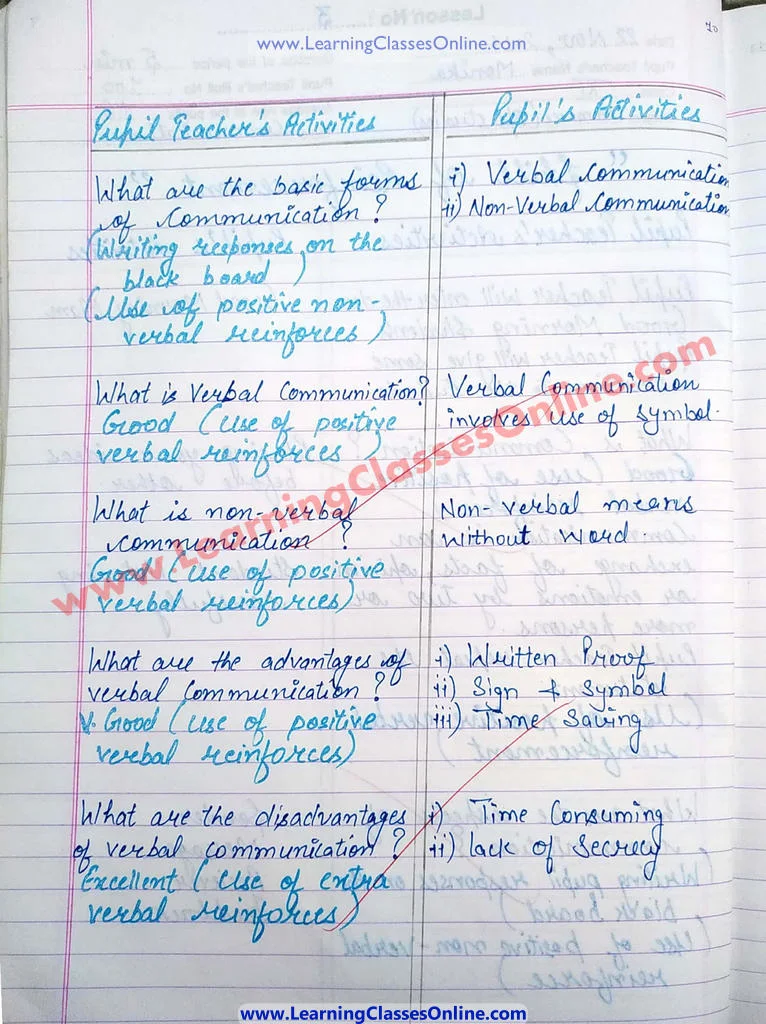 www.LearningClassesOnline.com
Pupil Teacher's Activities
Pupil's Activities
What are the basic forms
of communication?
(Writing responses on the
black board)
(Use of positive non-
verbal reinforces)
i) Verbal Communication
ii) Non-Verbal Communication
What is Verbal Communication?
Good (Use of positive
verbal reinforces)
Verbal Communication
involves use of symbol.
What is non-verbal
communication?
Good (Use of positive
verbal reinforces)
Non-verbal means
without word.
What are the advantages of
verbal communication?
V. Good (Use of positive
verbal reinforces)
i) Written Proof
ii) Sign & Symbol
iii) Time Saving
What are the disadvantages
of verbal communication?
Excellent (Use of extra
verbal reinforces)
i) Time Consuming
ii) lack of Secrecy
www.LearningClassesOnline.com
www.LearningClassesOnline.com